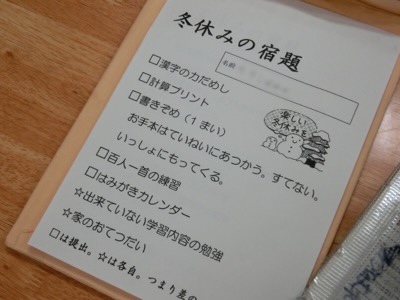 冬休みの宿題
名前
□漢字の力だめし
□計算プリント
□書きぞめ（1まい）
お手本はていねいにあつかう。すてない。
いっしょにもってくる。
楽しい
冬休みを
□百人一首の練習
□はみがきカレンダー
☆出来ていない学習内容の勉強
☆家のおてつだい
□は提出。☆は各自。つまり差の